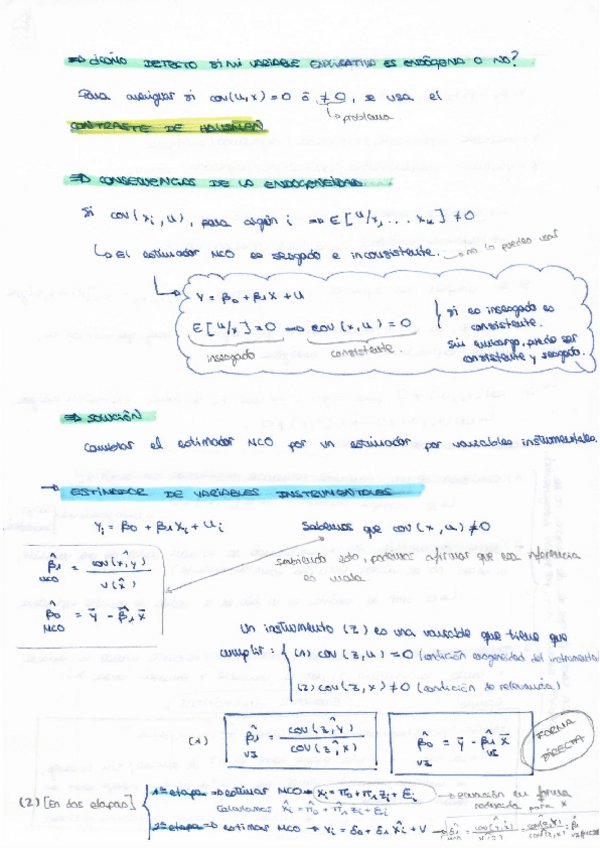 ⇒ ¿CÓMO DETECTO SI MI VARIABLE EXPLICATIVA ES ENDÓGENA O NO?
Para averiguar si cov(u,x)=0 ó ≠0, se usa el
↳ problema
CONTRASTE DE HAUSMAN
⇒ CONSECUENCIAS DE LA ENDOGENEIDAD
Si cov(xi, u), para algún i ⇒ E[u/x, ... xk] ≠0
↳ El estimador MCO es sesgado e inconsistente. → no lo puedes usar
↳ Y = β0 + β1X + u
E[u/x]=0 ⇒ cov(x,u)=0
insesgado consistente.
si es insesgado es
consistente.
sin embargo, puede ser
consistente y sesgado.
⇒ SOLUCIÓN
Cambiar el estimador MCO por un estimador por variables instrumentales.
→ ESTIMADOR DE VARIABLES INSTRUMENTALES
Yi = β0 + β1Xi + ui Sabemos que cov(x,u)≠0
sabiendo esto, podemos afirmar que esa inferencia
es mala
β̂1 MCO = cov(x̂,y) / v(x̂)
β̂0 MCO = ȳ - β̂1 x̄
Un instrumento (Z) es una variable que tiene que
cumplir: (1) cov(z,u)=0 (condición exogeneidad del instrumento)
(2) cov(z,x)≠0 (condición de relevancia)
(1) β̂1 VI = cov(z,̂y) / cov(z,̂x) β̂0 VI = ȳ - β̂1 VI x̄ FORMA DIRECTA
(2) [En dos etapas] 1ª etapa ⇒ estimar MCO ⇒ Xi = π0 + π1 zi + εi → ecuación en forma reducida para x
Calculamos x̂i = π̂0 + π̂1 zi
2ª etapa ⇒ estimar MCO ⇒ Yi = δ0 + δ1 x̂i + v